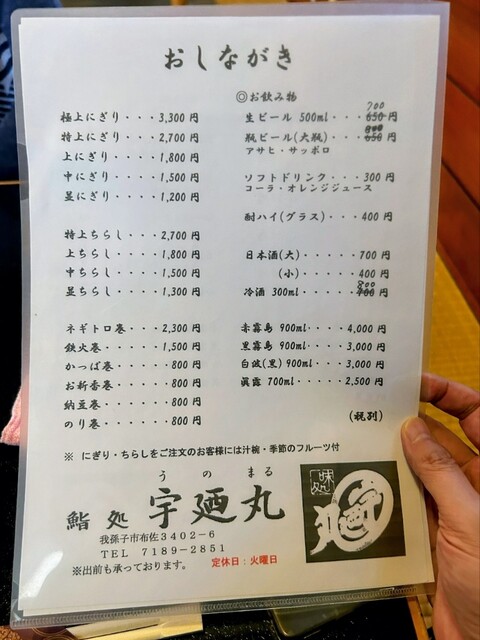 おしながき
極上にぎり・・・3,300 円
特上にぎり・・・2,700 円
上にぎり・・・・1,800 円
中にぎり・・・・1,500 円
並にぎり・・・・1,200 円
特上ちらし・・・2,700 円
上ちらし・・・・1,800 円
中ちらし・・・・1,500 円
並ちらし・・・・1,300 円
ネギトロ巻・・・2,300 円
鉄火巻・・・・・1,500 円
かっぱ巻・・・・800 円
お新香巻・・・・800 円
納豆巻・・・・・800 円
のり巻・・・・・800 円
◎お飲み物
700
生ビール 500ml・・・650 円
800
瓶ビール(大瓶)・・・650 円
アサヒ・サッポロ
ソフトドリンク・・・300 円
コーラ・オレンジジュース
酎ハイ(グラス)・・・400 円
日本酒(大)・・・・・700 円
(小)・・・・・400 円
800
冷酒 300ml・・・・・700 円
赤霧島 900ml・・・・4,000 円
黒霧島 900ml・・・・3,000 円
白波(黒)900ml・・・・3,000 円
眞露 700ml・・・・・2,500 円
(税別)
※ にぎり・ちらしをご注文のお客様には汁椀・季節のフルーツ付
うのまる
鮨処 宇廼丸
味処
我孫子市布佐3402-6
TEL 7189-2851
※出前も承っております。
定休日:火曜日